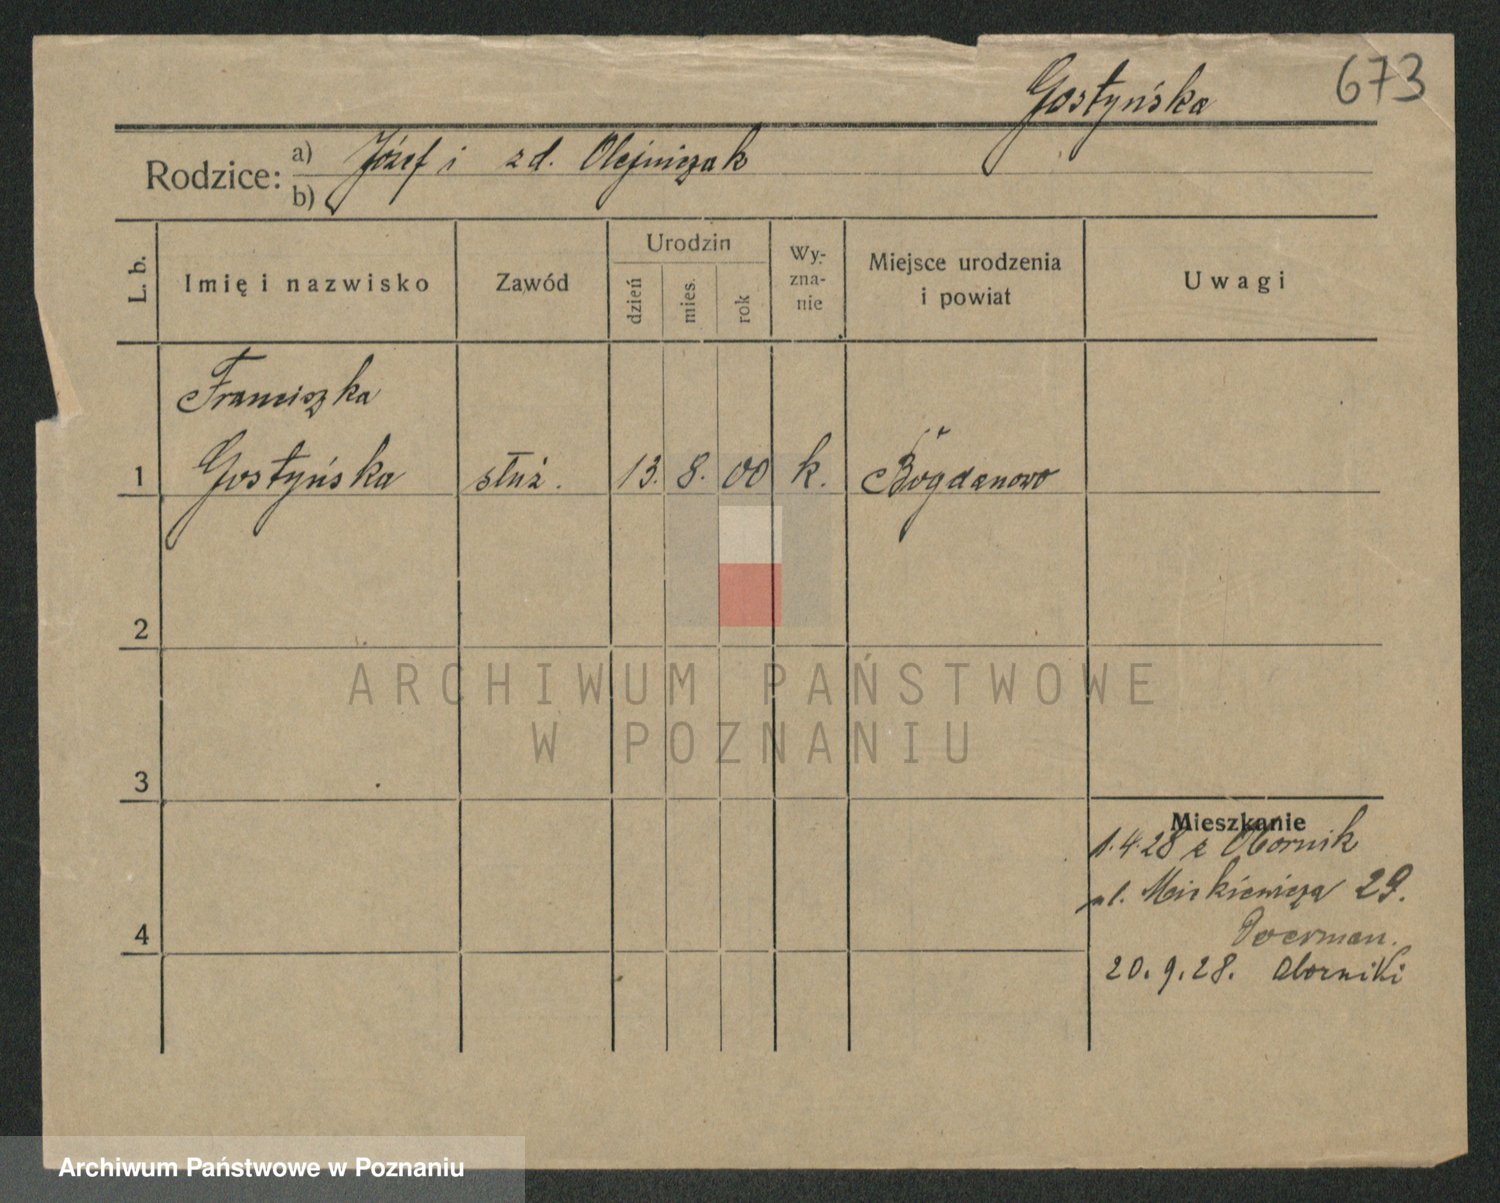 673
Gostyńska
Rodzice: a) Józef i zd. Olejniczak
b)
L. b. Imię i nazwisko Zawód Urodzin dzień mies. rok Wyznanie Miejsce urodzenia i powiat Uwagi
Franciszka
1 Gostyńska służ. 13. 8. 00 k. Bogdanowo
2
3
Mieszkanie
1.4.28 z Obornik
ul. Mickiewicza 29.
4
20.9.28. Oborniki
ARCHIWUM PAŃSTWOWE
W POZNANIU
Archiwum Państwowe w Poznaniu